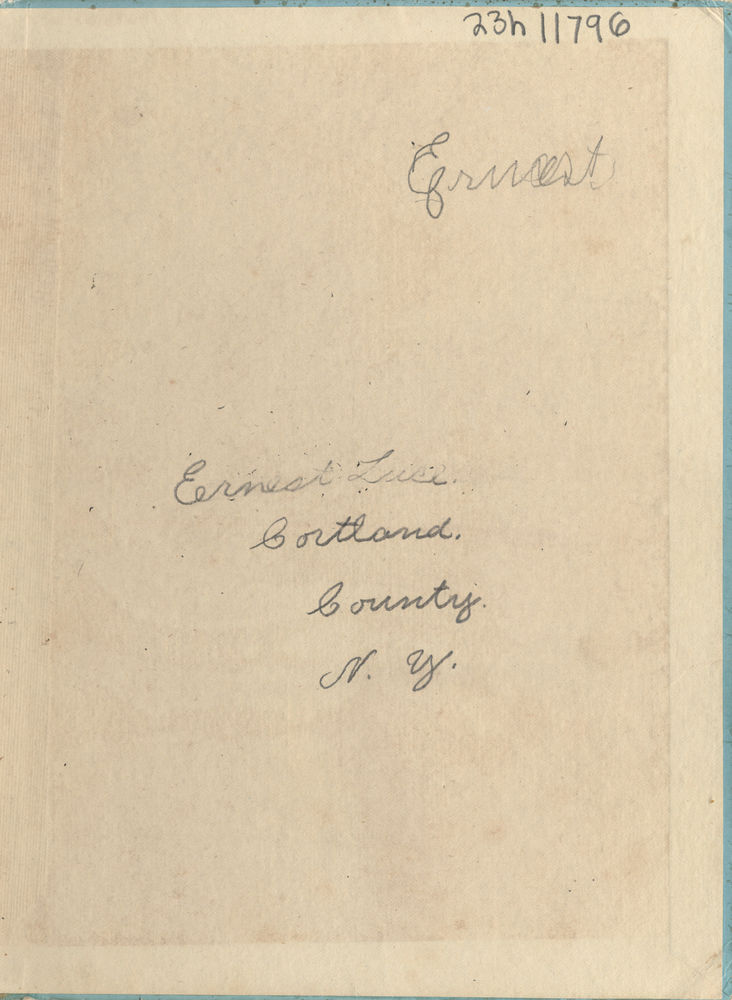 23h 11796
Ernest
Ernest Luce.
Cortland.
County.
N. Y.